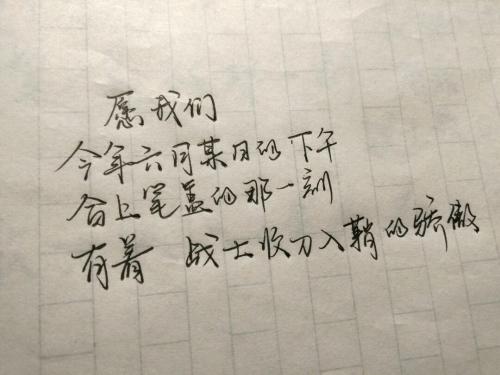 愿我们
今年六月某日的下午
合上笔盖的那一刻
有着 战士收刀入鞘的骄傲